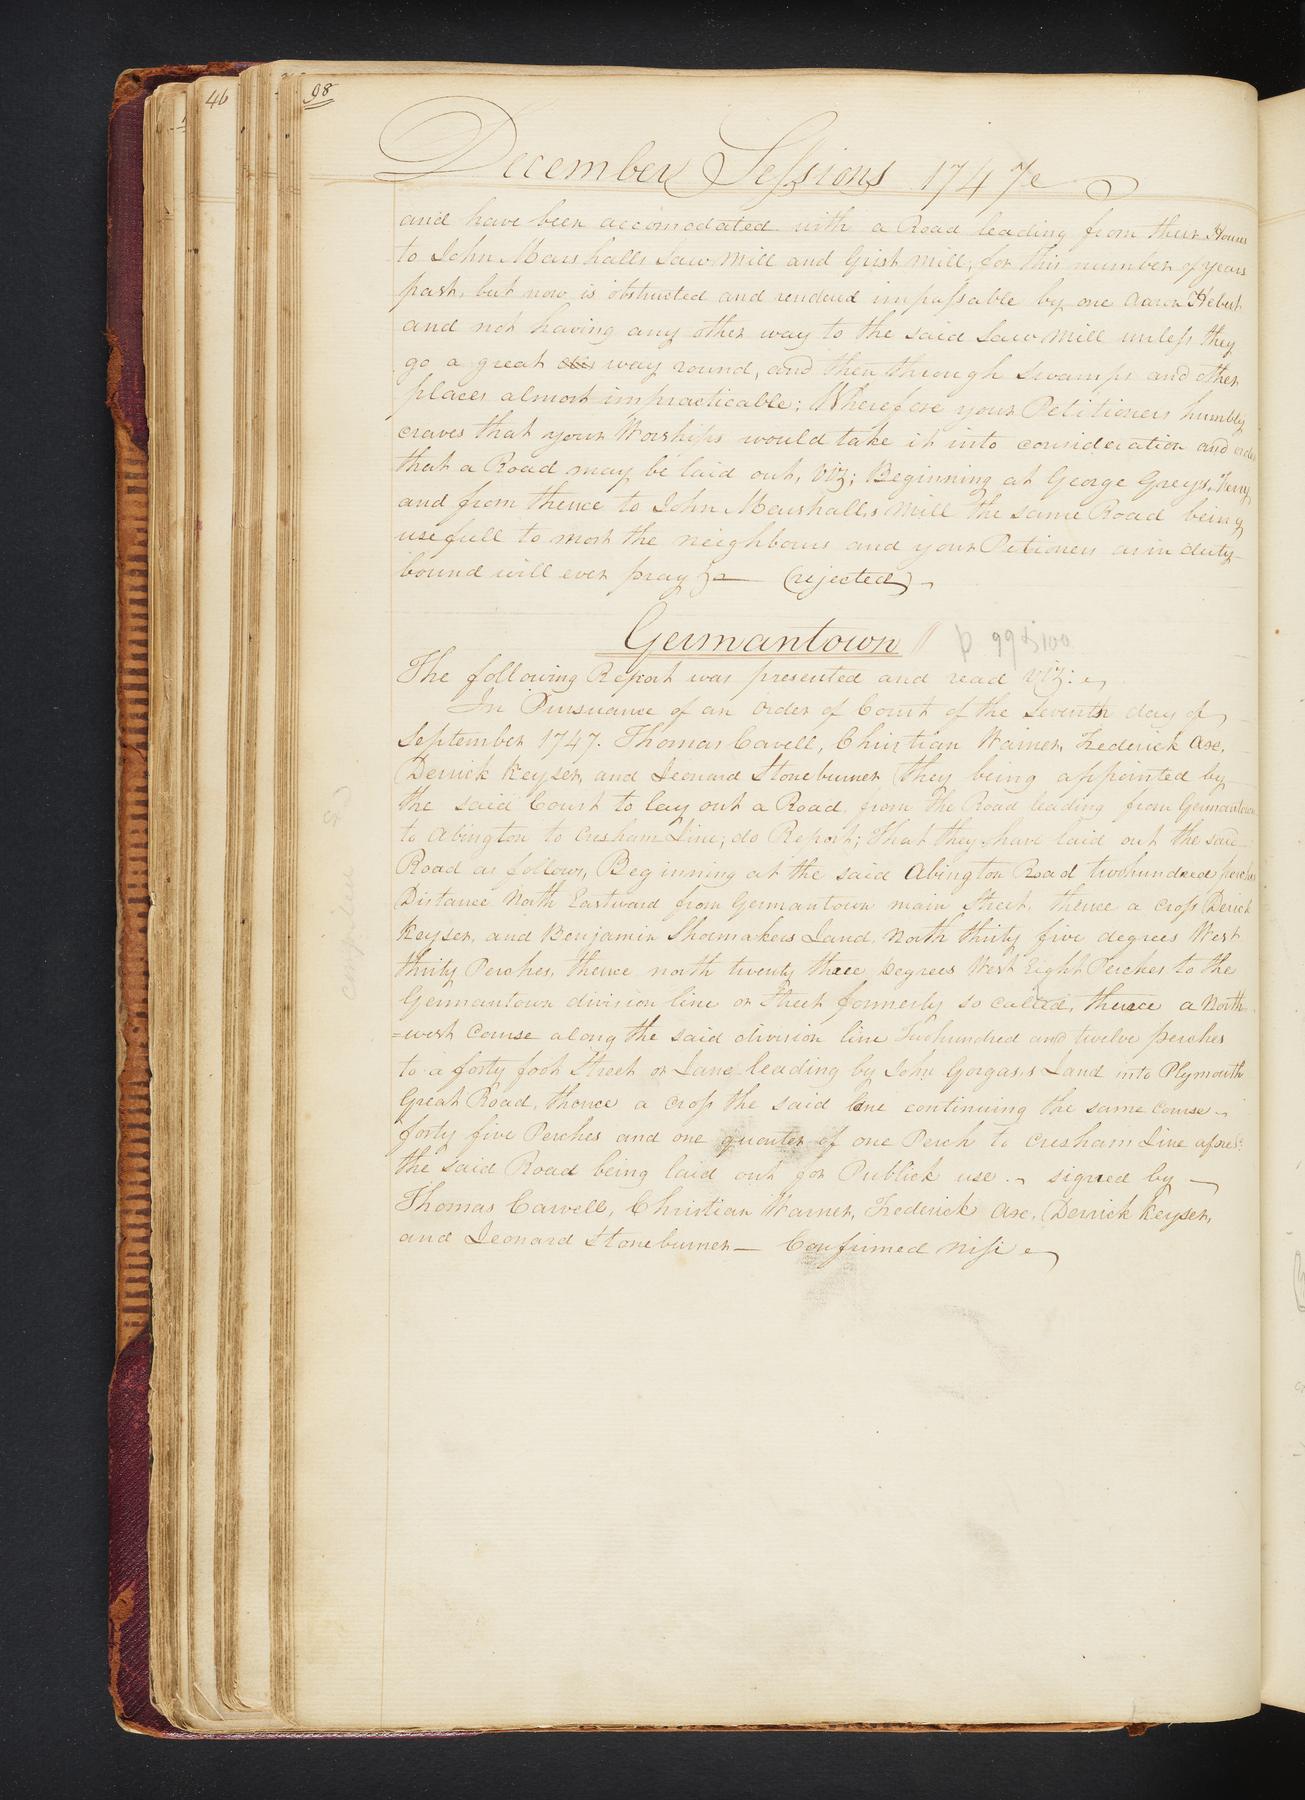 46
98
December Sessions 1747
and have been accomodated with a Road leading from their Houses
to John Marshalls Saw Mill and Grist Mill, for this number of years
past, but now is obstructed and renderd impassable by one Aaron Hebert
and not having any other way to the said Saw Mill unless they
go a great way round, and then through Swamps and other
places almost impracticable; Wherefore your Petitioners humbly
craves that your Worships would take it into consideration and order
that a Road may be laid out, Viz; Beginning at George Greys, Ferry
and from thence to John Marshalls Mill the same Road being
usefull to most the neighbours and your Petioners as in duty
bound will ever pray (rejected)
Germantown p 99 & 100
The following Report was presented and read viz:
In Pursuance of an order of Court of the Seventh day of
September 1747. Thomas Cavell, Christian Warner, Frederick Axe,
Derrick Keyser, and Leonard Stoneburner (they being appointed by
the said Court to lay out a Road, from the Road leading from Germantown
to Abington to Cresham Line; do Report; That they have laid out the said
Road as follows, Beginning at the said Abington Road two hundred perches
Distance North Eastward from Germantown main Street, thence a cross Derick
Keyser, and Benjamin Shoemakers Land, North thirty five degrees West
thirty Perches, thence north twenty three Degrees West Eight Perches to the
Germantown division line or Street formerly so called, thence a North
=west Course along the said division line Two hundred and twelve perches
to a forty foot Street or Lane leading by John Gorgas,s Land into Plymouth
Great Road, thence a cross the said line continuing the same Course
forty five Perches and one quarter of one Perch to Cresham Line afores:
the said Road being laid out for Publick use. signed by
Thomas Carvell, Christian Warner, Frederick Axe, Derrick Keyser,
and Leonard Stoneburner — Confirmed nisi
compiled